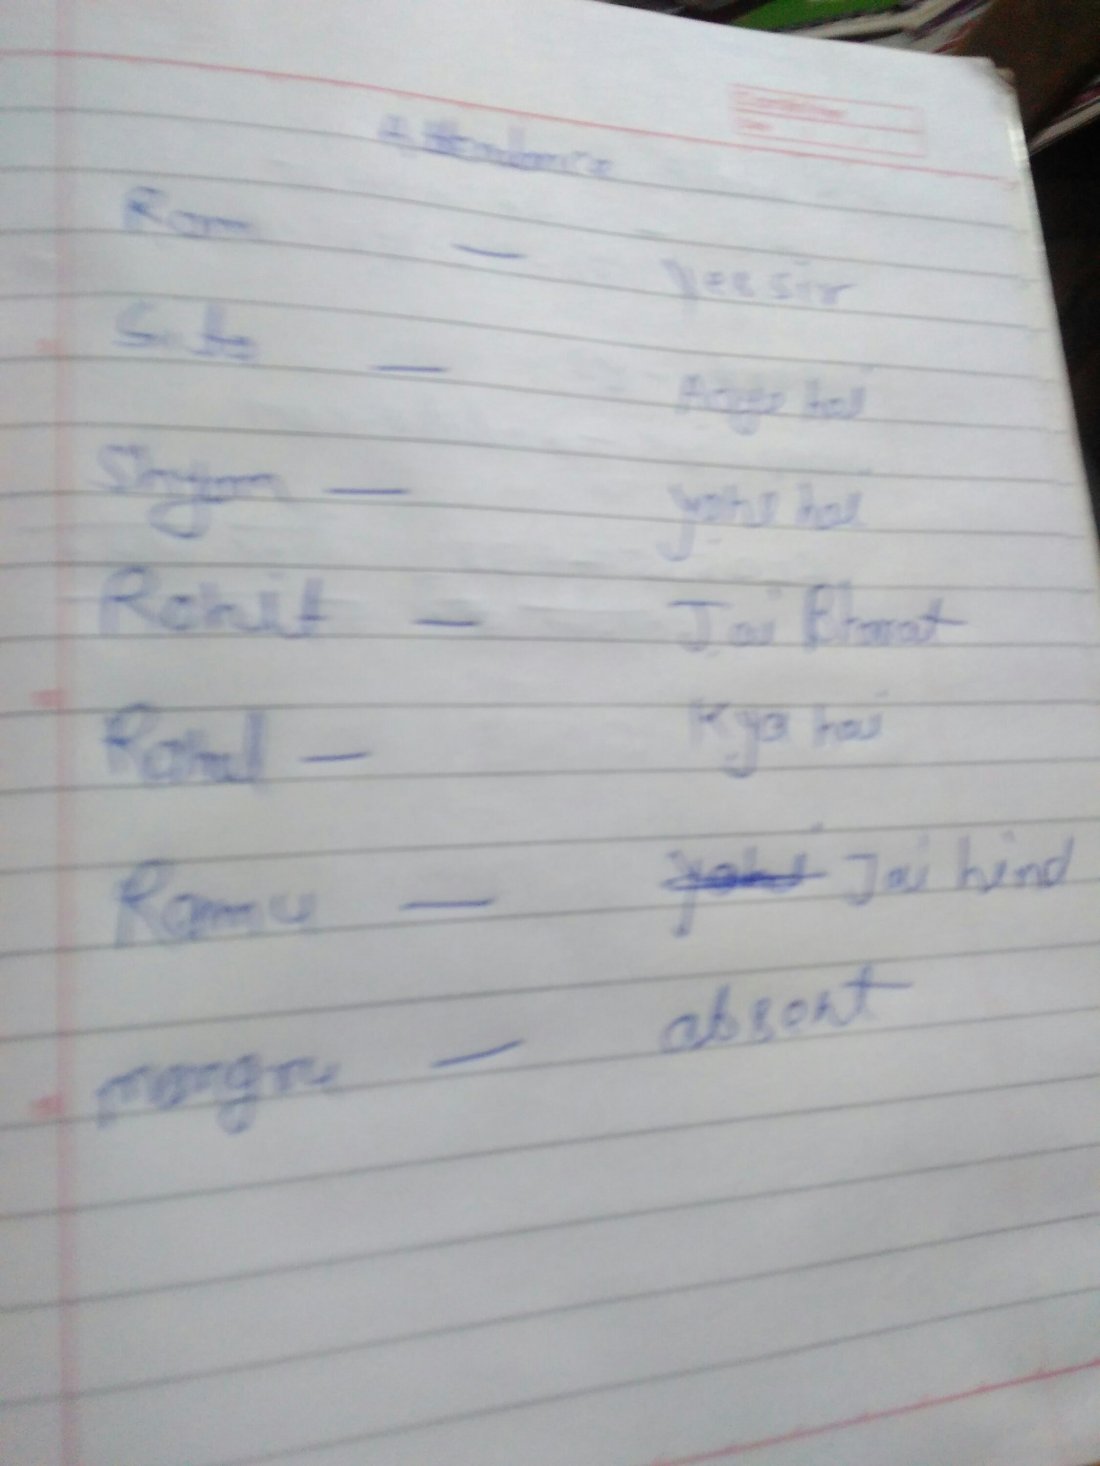 Attendance
Ram — yes sir
Sita — Aaya hai
Shyam — yahi hai
Rohit — Jai Bharat
Rahul — Kya hai
Ramu — yahi Jai hind
mangru — absent